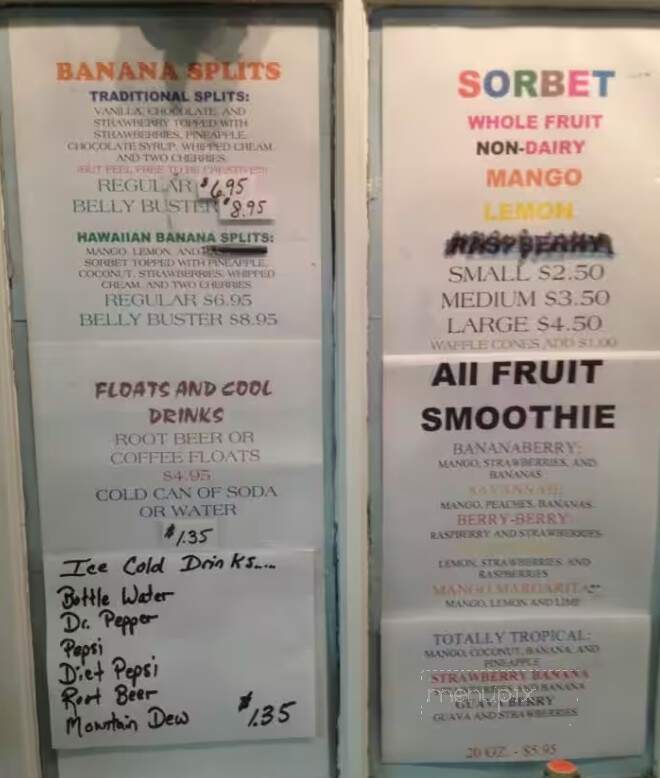 BANANA SPLITS
TRADITIONAL SPLITS:
VANILLA, CHOCOLATE, AND
STRAWBERRY TOPPED WITH
STRAWBERRIES, PINEAPPLE,
CHOCOLATE SYRUP, WHIPPED CREAM,
AND TWO CHERRIES.
(BUT FEEL FREE TO BE CREATIVE!!!)
REGULAR $6.95
BELLY BUSTER $8.95
HAWAIIAN BANANA SPLITS:
MANGO, LEMON, AND
SORBET TOPPED WITH PINEAPPLE,
COCONUT, STRAWBERRIES, WHIPPED
CREAM, AND TWO CHERRIES
REGULAR $6.95
BELLY BUSTER $8.95
FLOATS AND COOL
DRINKS
ROOT BEER OR
COFFEE FLOATS
$4.95
COLD CAN OF SODA
OR WATER
$1.35
Ice Cold Drinks....
Bottle Water
Dr. Pepper
Pepsi
Diet Pepsi
Root Beer
Mountain Dew $1.35
SORBET
WHOLE FRUIT
NON-DAIRY
MANGO
LEMON
RASPBERRY
SMALL $2.50
MEDIUM $3.50
LARGE $4.50
WAFFLE CONES ADD $1.00
All FRUIT
SMOOTHIE
BANANABERRY:
MANGO, STRAWBERRIES, AND
BANANAS
SAVANNAH:
MANGO, PEACHES, BANANAS
BERRY-BERRY:
RASPBERRY AND STRAWBERRIES
LEMON, STRAWBERRIES, AND
RASPBERRIES
MANGO MARGARITA:
MANGO, LEMON AND LIME
TOTALLY TROPICAL:
MANGO, COCONUT, BANANA, AND
PINEAPPLE
STRAWBERRY BANANA
AND BANANA
menupix
GUAVA BERRY
GUAVA AND STRAWBERRIES
20 OZ. - $5.95